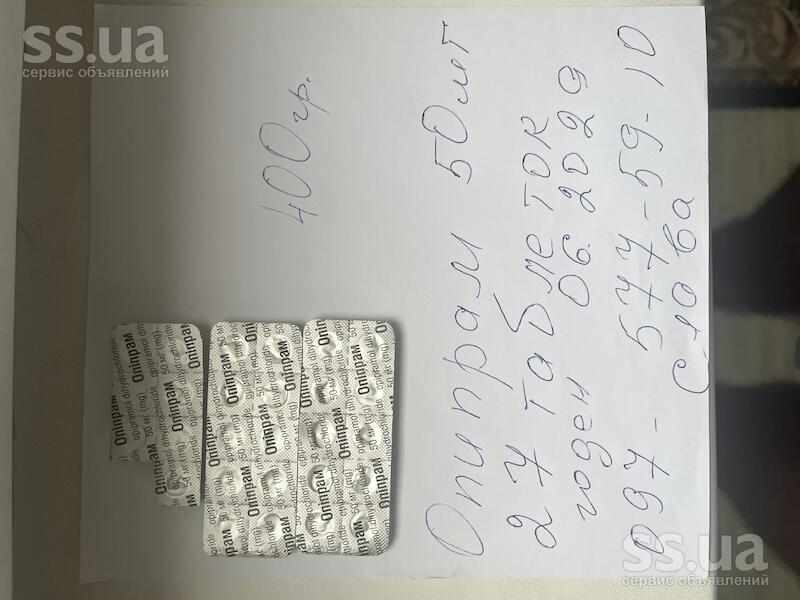 ss.ua
сервис объявлений
400 гр.
Опипрам 50мг
27 таблеток
годен 06.2029
097-577-59-10
Слова
Опіпрам
50 мг (mg)
opipramol dihydrochloride
ss.ua
сервис объявлений